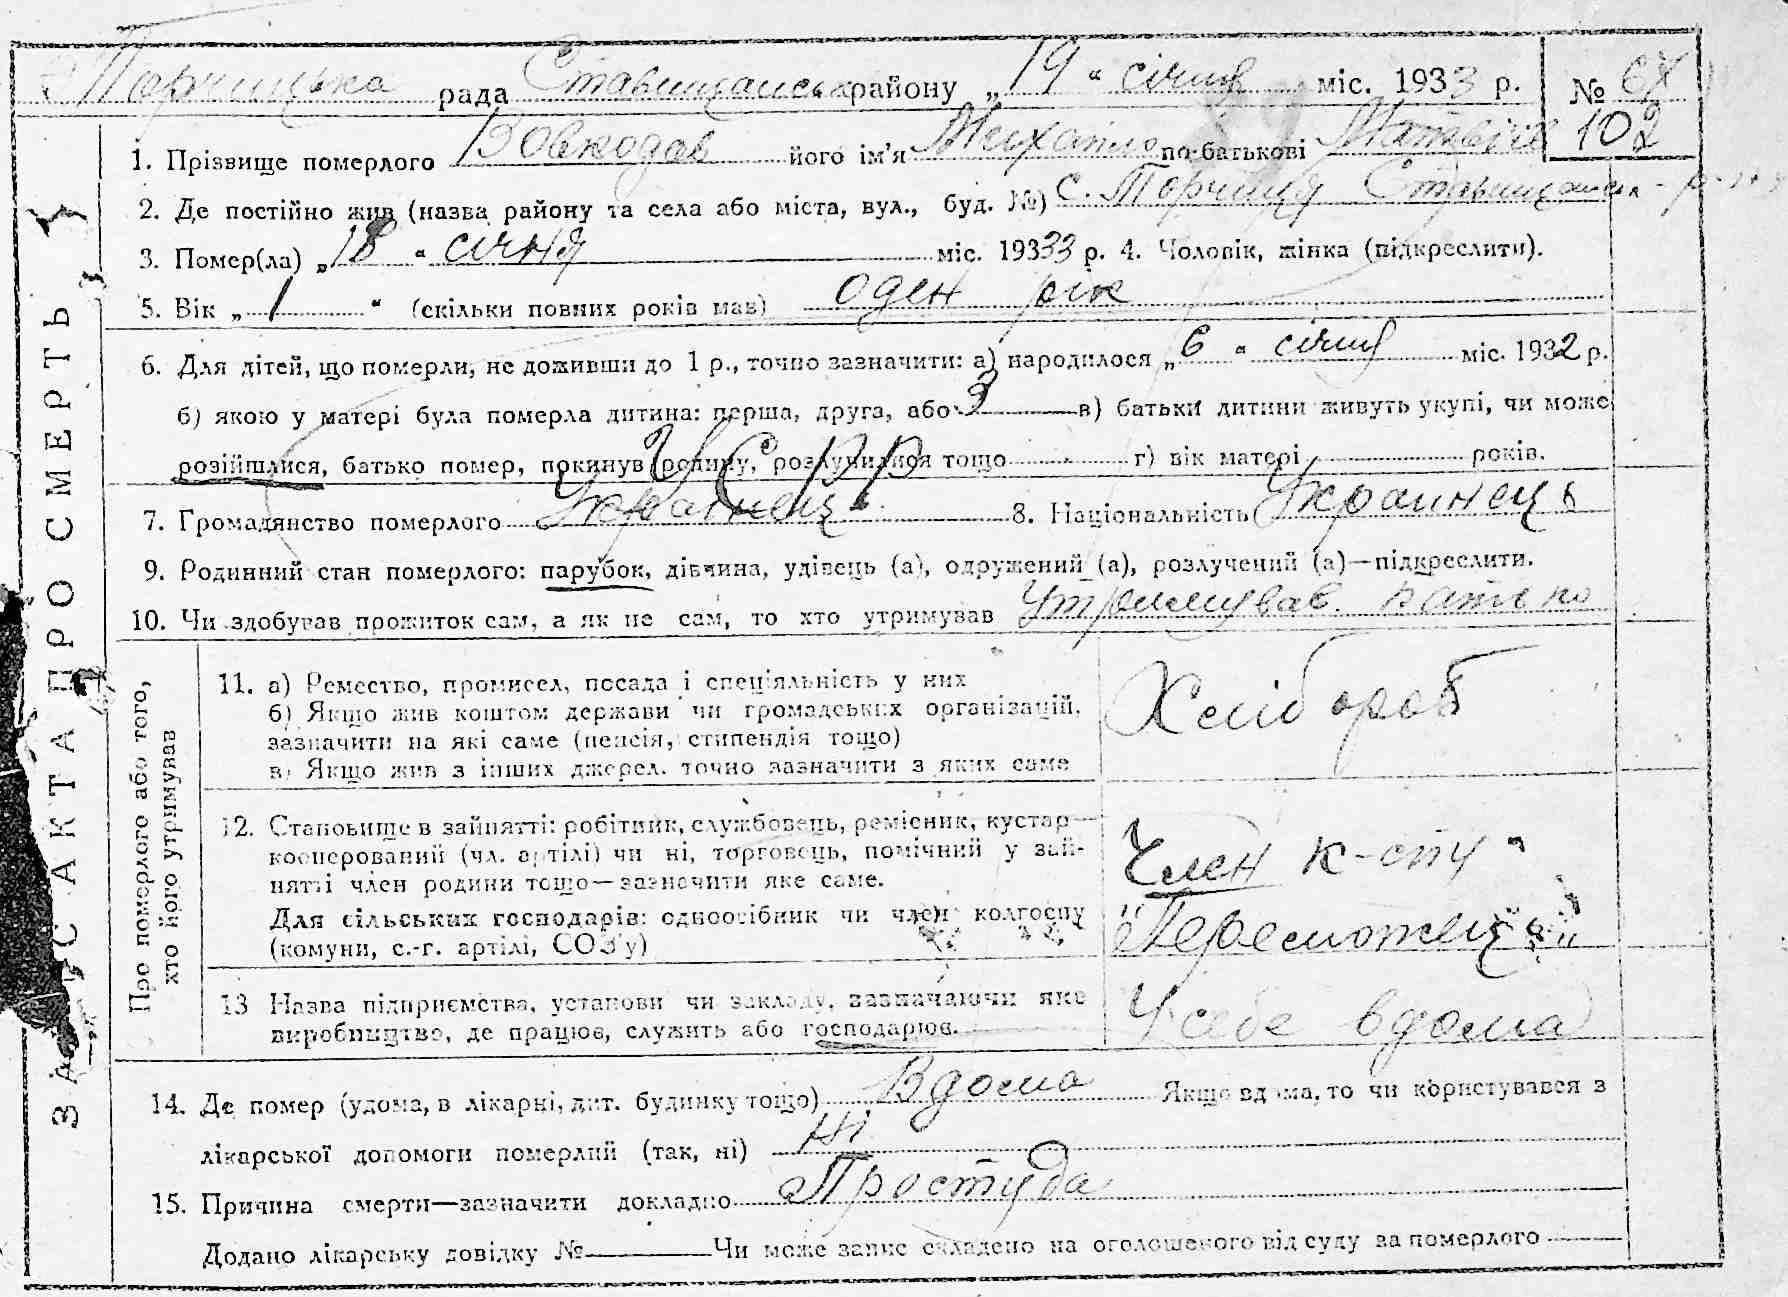 Торчицька рада Ставищанськ району „19“ січня міс. 1933 р. № 67
102
1. Прізвище померлого Вовкодав його ім’я Михайло по-батькові
2. Де постійно жив (назва району та села або міста, вул., буд. №) с. Торчиця Ставищанськ р-ну
3. Помер(ла) „18“ січня міс. 1933 р. 4. Чоловік, жінка (підкреслити).
5. Вік „1“ (скільки повних років мав) оден рік
6. Для дітей, що померли, не доживши до 1 р., точно зазначити: а) народилося „6“ січня міс. 1932 р.
б) якою у матері була померла дитина: перша, друга, або 3 в) батьки дитини живуть укупі, чи може
розійшлися, батько помер, покинув родину, розлучилися тощо г) вік матері років.
УСРР
7. Громадянство померлого Украинец 8. Національність Украинець
9. Родинний стан померлого: парубок, дівчина, удівець (а), одружений (а), розлучений (а)—підкреслити.
10. Чи здобував прожиток сам, а як не сам, то хто утримував Утримував батько
11. а) Ремество, промисел, посада і спеціяльність у них
б) Якщо жив коштом держави чи громадських організацій,
зазначити на які саме (пенсія, стипендія тощо)
в) Якщо жив з інших джерел, точно зазначити з яких саме
Хлібороб
12. Становище в зайнятті: робітник, службовець, ремісник, кустар—
кооперований (чл. артілі) чи ні, торговець, помічний у зай-
нятті член родини тощо—зазначити яке саме.
Для сільських господарів: одноосібник чи член колгоспу
(комуни, с.-г. артілі, СОЗ’у)
Член к-спу
13 Назва підприємства, установи чи закладу, зазначаючи яке
виробництво, де працює, служить або господарює.
У себе вдома
14. Де помер (удома, в лікарні, дит. будинку тощо) Вдома Якщо вдома, то чи користувався з
лікарської допомоги померлий (так, ні) Ні
15. Причина смерти—зазначити докладно Простуда
Додано лікарську довідку № Чи може запис складено на оголошеного від суду за померлого
Про померлого або того,
хто його утримував
З АКТА ПРО СМЕРТЬ